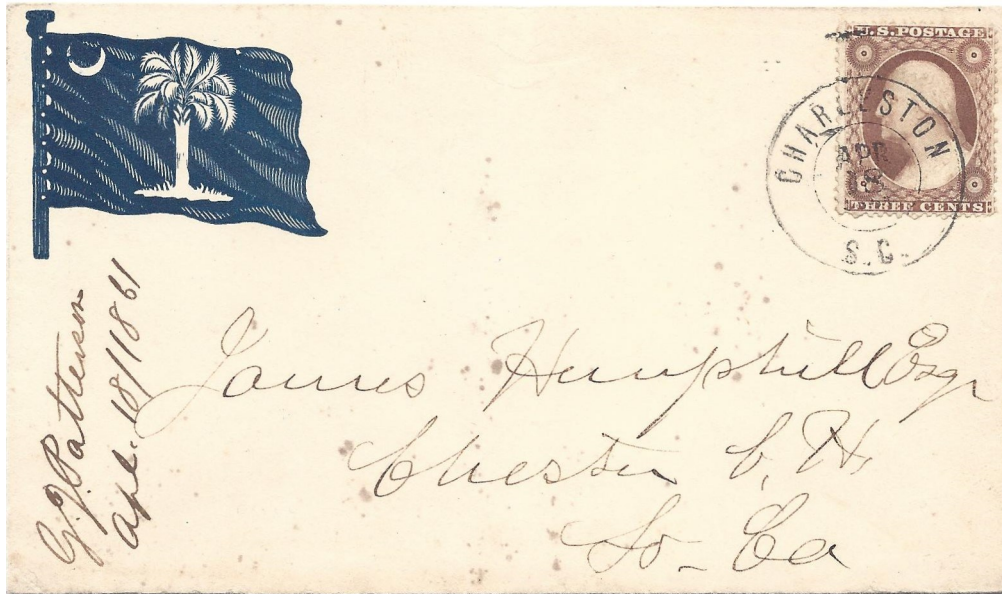 U.S. POSTAGE
THREE CENTS
CHARLESTON
APR
18
S.C.
G. J. Patterson
Apl. 18/1861
James Hemphill Esqr
Chester C. H.
So_ Ca